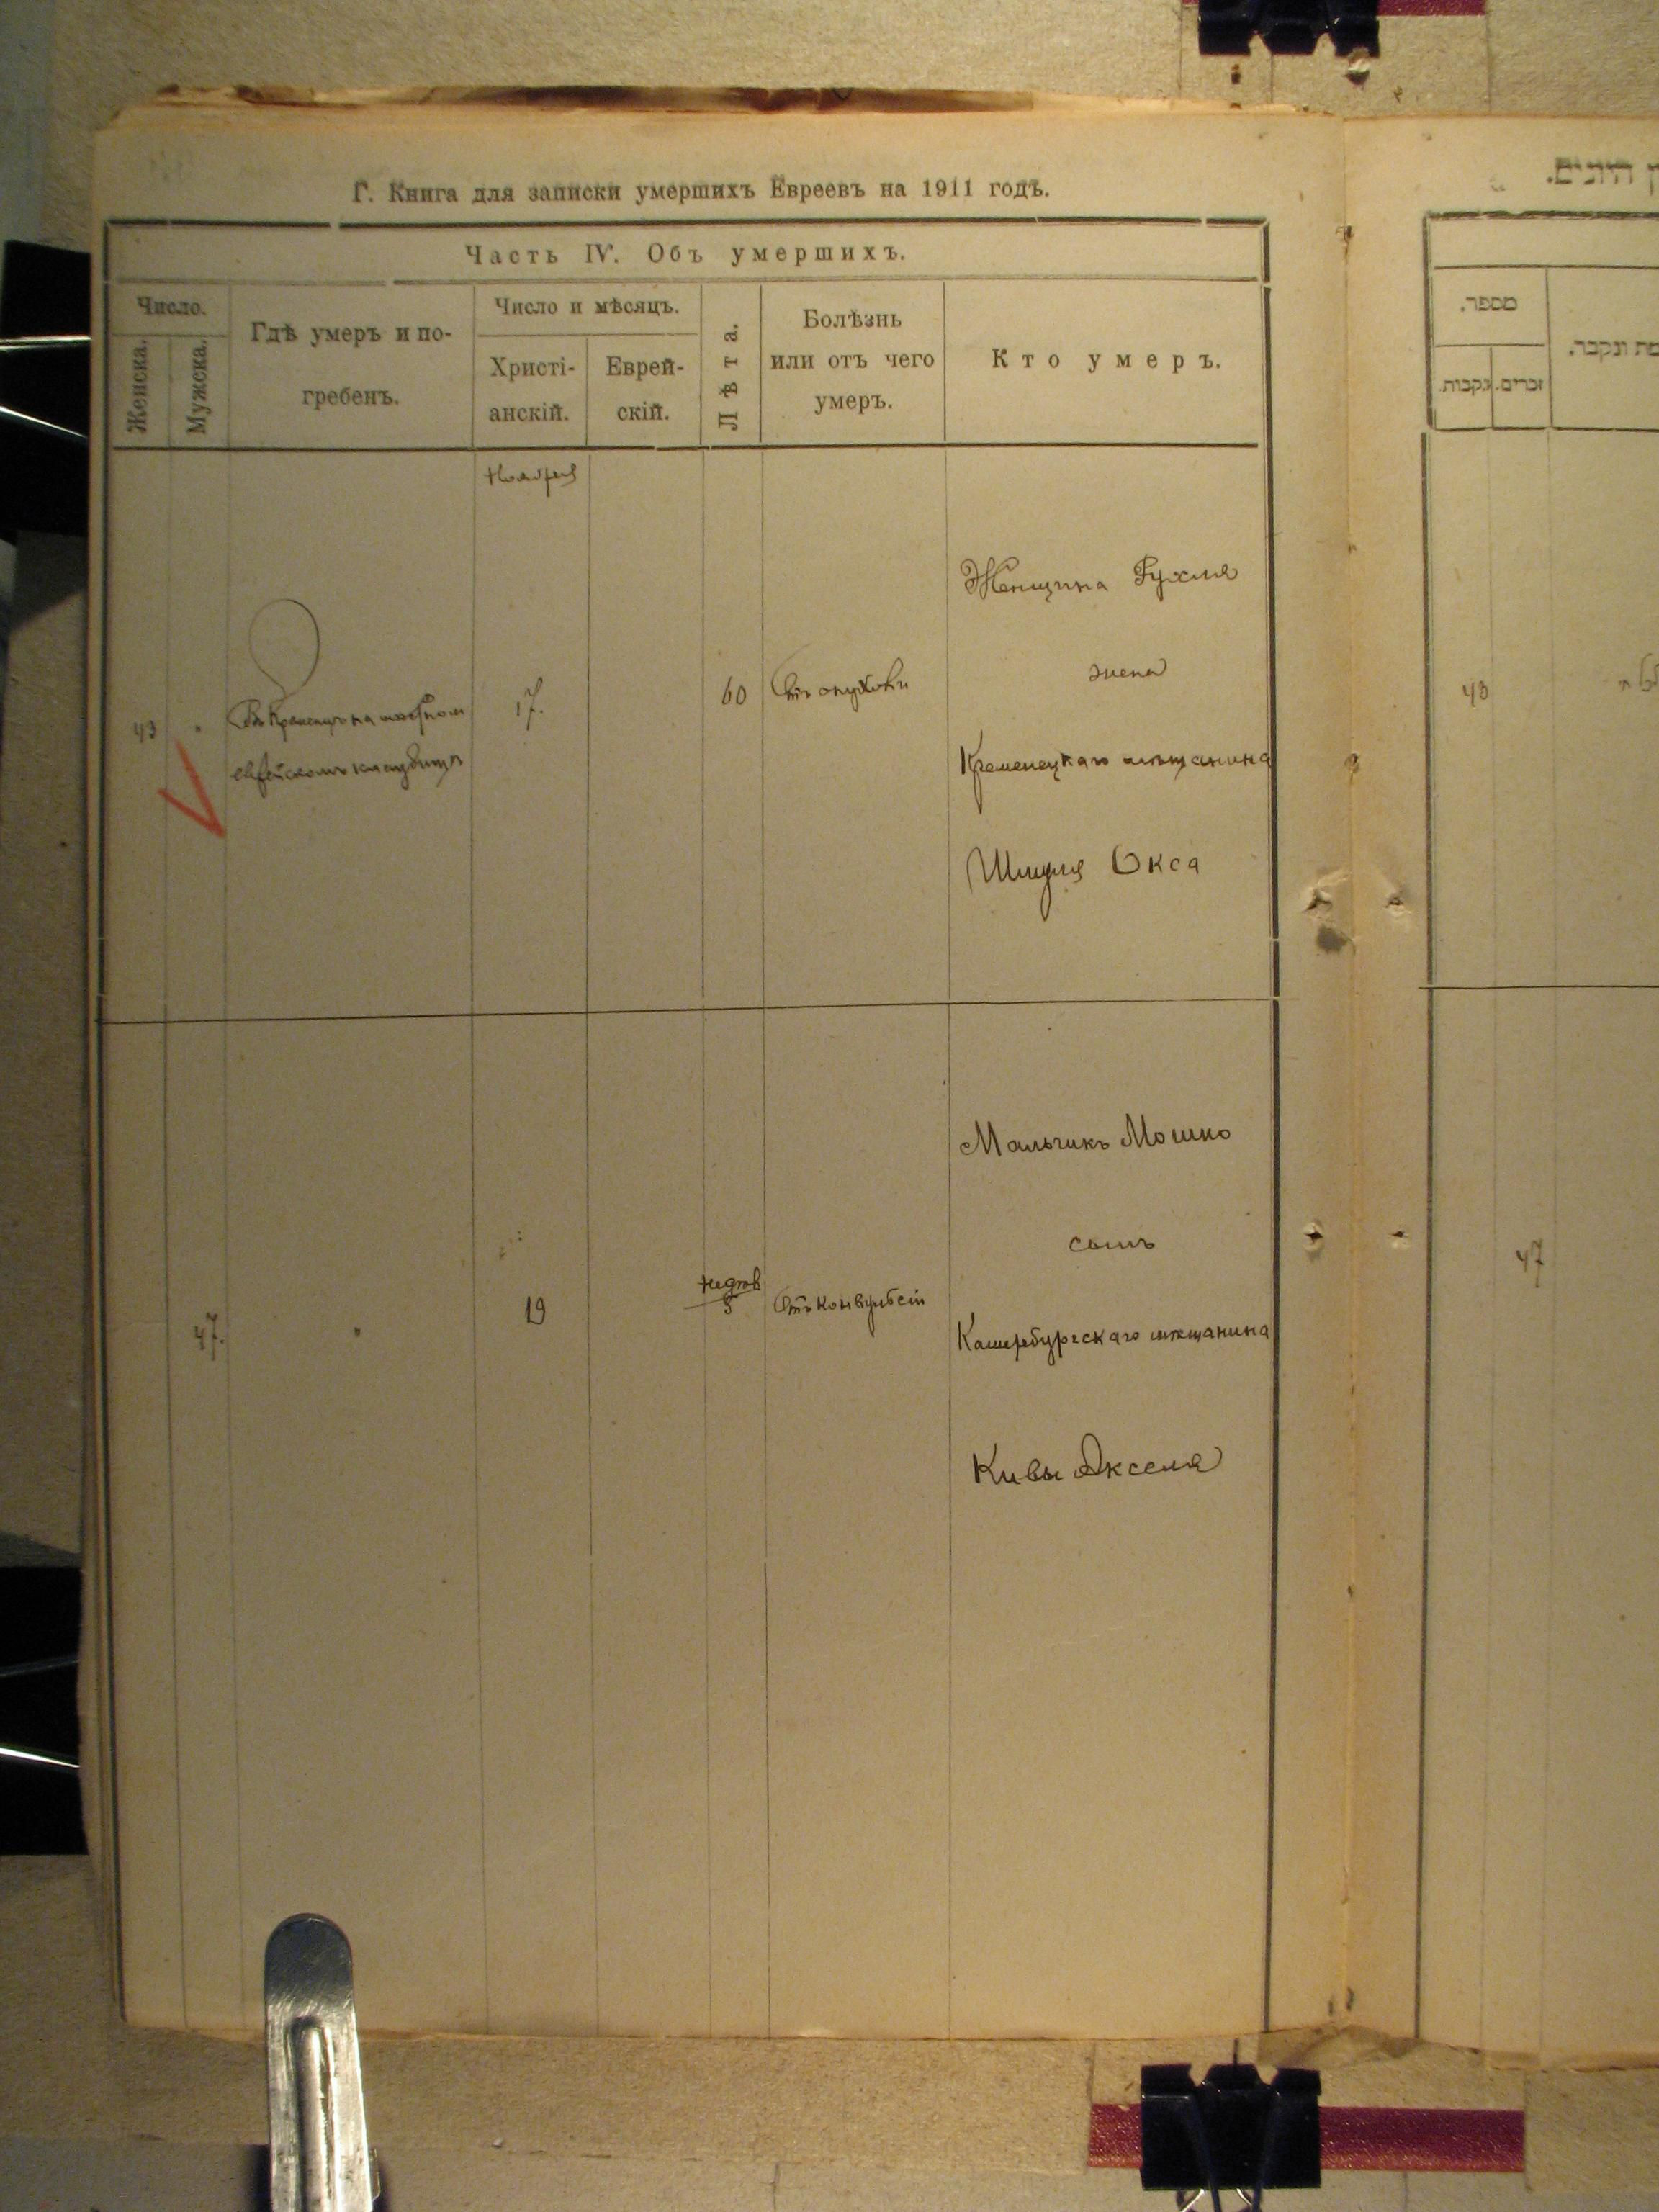 Г. Книга для записки умершихъ Евреевъ на 1911 годъ.
Часть IV. Объ умершихъ.
Число.
Женска.
Мужска.
Гдѣ умеръ и по-
гребенъ.
Число и мѣсяцъ.
Христі-
анскій.
Еврей-
скій.
Лѣта.
Болѣзнь
или отъ чего
умеръ.
Кто умеръ.
Ноября
43
Въ Кременцѣ на
еврейскомъ кладбищѣ
17.
60
Отъ опухоли
Женщина Рухля
жена
Кременецкаго мѣщанина
Шмуля Окса
47.
"
19
недѣль
5
Отъ конвульсій
Мальчикъ Мошко
сынъ
Катербургскаго мѣщанина
Кивы Акселя
מספר.
זכרים.
נקבות.
43
47